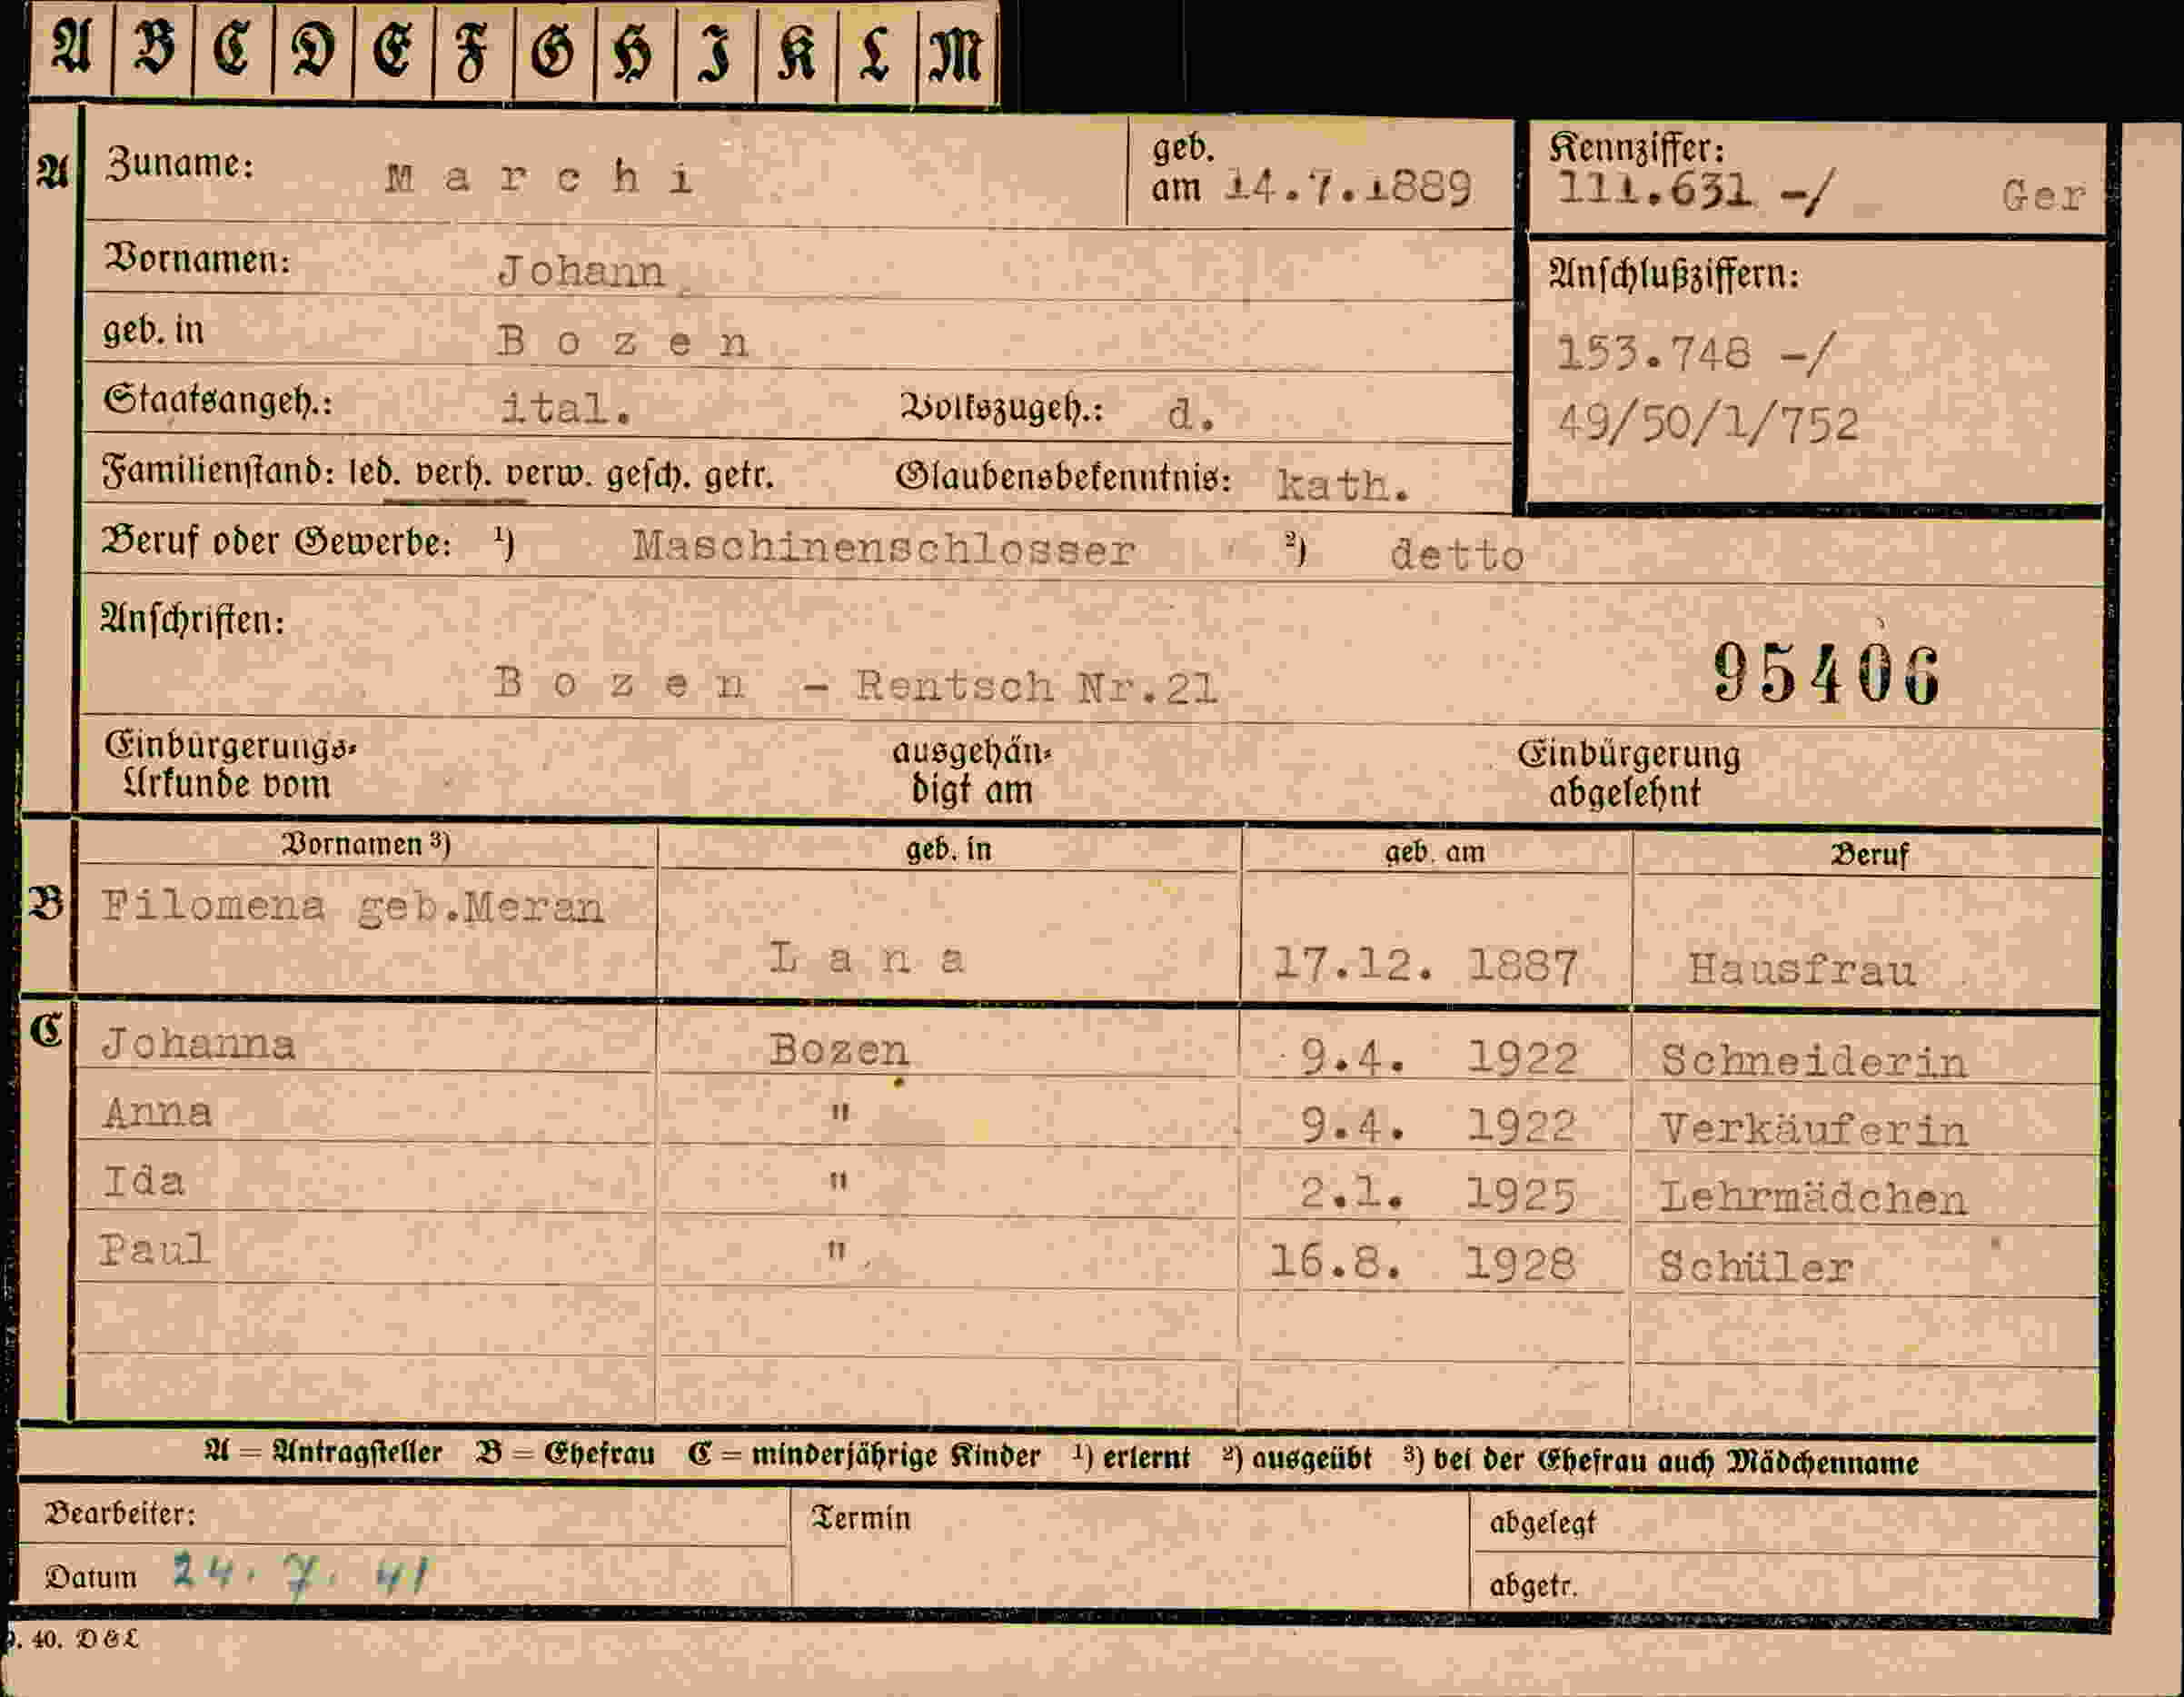 A B C D E F G H I K L M
A Zuname: Marchi geb. am 14.7.1889 Kennziffer: 111.631 -/ Ger
Vornamen: Johann
geb. in Bozen
Anschlußziffern:
153.748 -/
49/50/1/752
Staatsangeh.: ital. Volkszugeh.: d.
Familienstand: led. verh. verw. gesch. getr. Glaubensbekenntnis: kath.
Beruf oder Gewerbe: 1) Maschinenschlosser 2) detto
Anschriften:
Bozen - Rentsch Nr.21
95406
Einbürgerungs-
Urkunde vom
ausgehän-
digt am
Einbürgerung
abgelehnt
Vornamen 3) geb. in geb. am Beruf
B Filomena geb.Meran
Lana 17.12. 1887 Hausfrau
C Johanna Bozen 9.4. 1922 Schneiderin
Anna " 9.4. 1922 Verkäuferin
Ida " 2.1. 1925 Lehrmädchen
Paul " 16.8. 1928 Schüler
A = Antragsteller B = Ehefrau C = minderjährige Kinder 1) erlernt 2) ausgeübt 3) bei der Ehefrau auch Mädchenname
Bearbeiter: Termin abgelegt
Datum 24. 7. 41 abgetr.
. 40. D & L